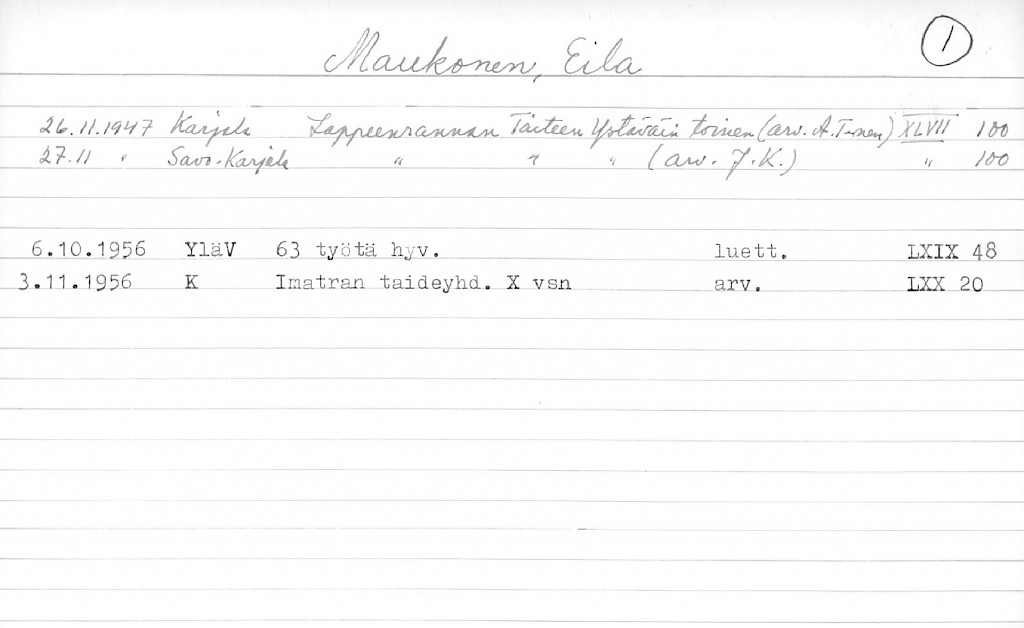 Maukonen, Eila
1
26.11.1947 Karjala Lappeenrannan Taiteen Ystäväin toinen (arv. A. T-nen) XLVIII 100
27.11 " Savo-Karjala " " " (arv. J.K.) " 100
6.10.1956 YläV 63 työtä hyv. luett. LXIX 48
3.11.1956 K Imatran taideyhd. X vsn arv. LXX 20